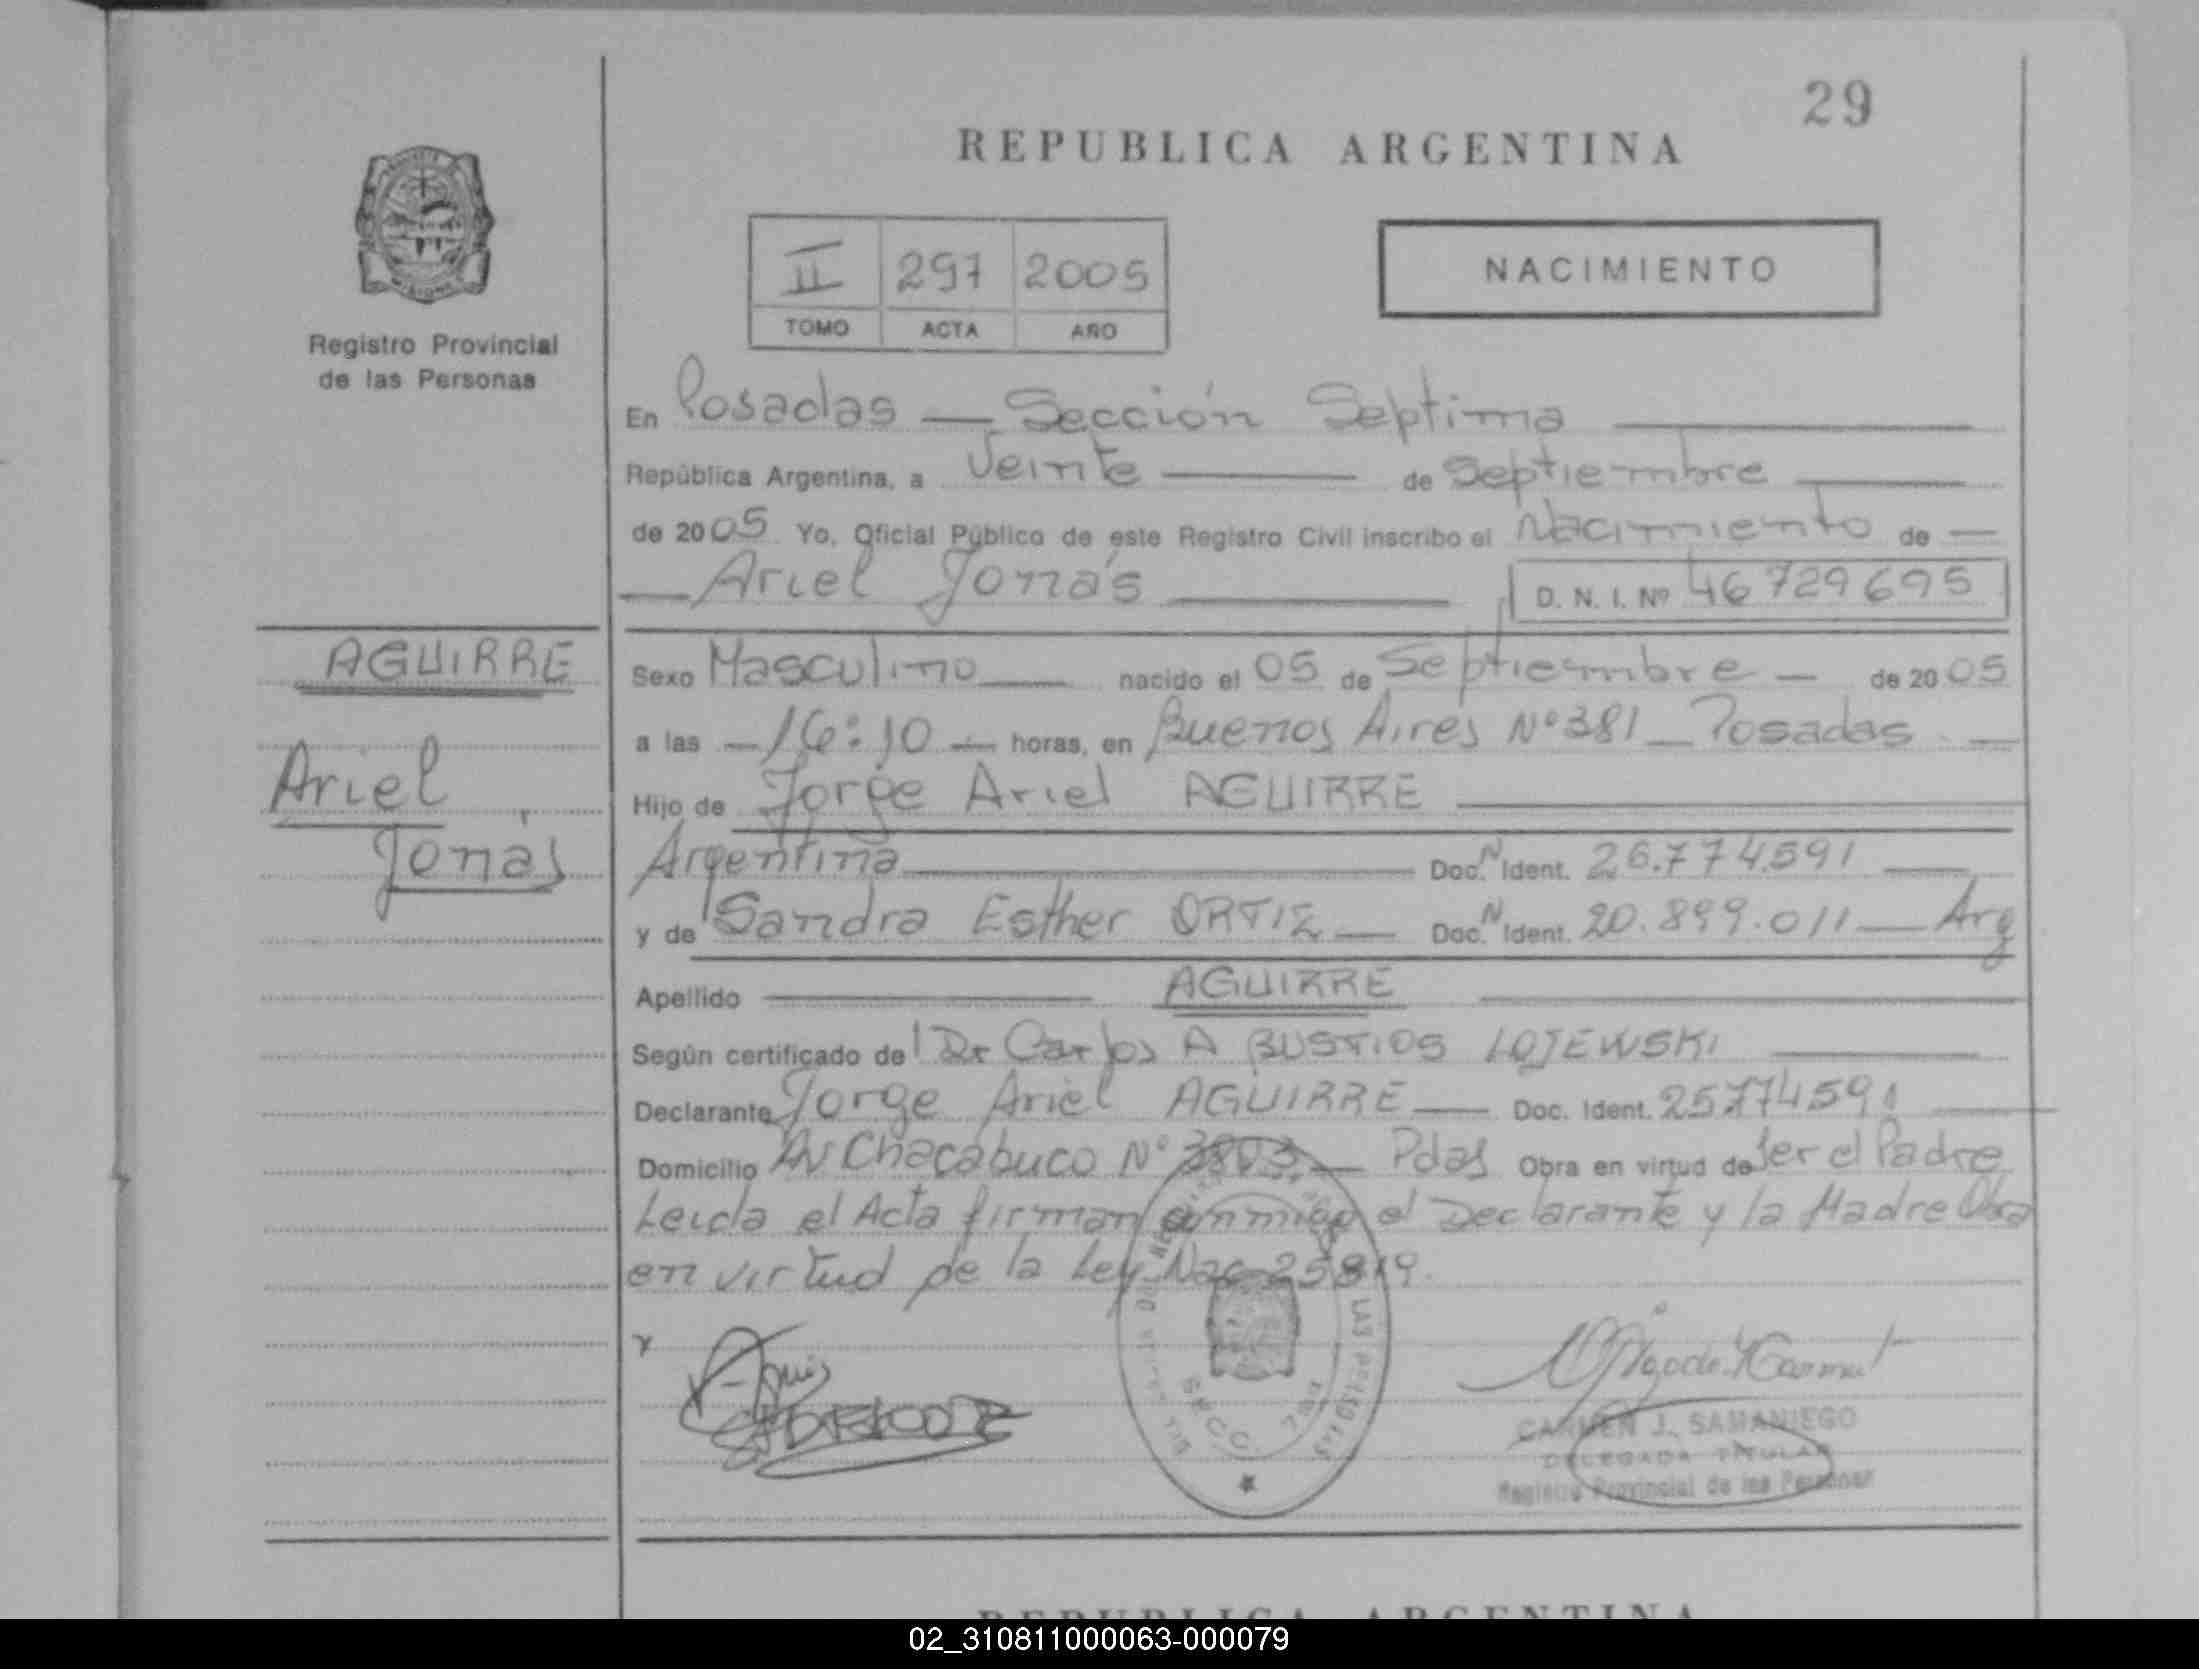 29
REPUBLICA ARGENTINA
II 297 2005
TOMO ACTA AÑO
NACIMIENTO
MISIONES
Registro Provincial
de las Personas
En Posadas — Sección Septima
República Argentina, a Veinte — de Septiembre
de 2005 Yo, Oficial Público de este Registro Civil inscribo el Nacimiento de —
— Ariel Jonás —
D. N. I. Nº 46729695
AGUIRRE
Ariel
Jonás
Sexo Masculino — nacido el 05 de Septiembre — de 2005
a las — 16:10 — horas, en Buenos Aires Nº 381 — Posadas —
Hijo de Jorge Ariel AGUIRRE
Argentina — Doc. N Ident. 26.774.591 —
y de Sandra Esther ORTIZ — Doc. N Ident. 20.899.011 — Arg
Apellido — AGUIRRE —
Según certificado de Dr Carlos A BUSTIOS LOJEWSKI —
Declarante Jorge Ariel AGUIRRE — Doc. Ident. 25774591
Domicilio Av Chacabuco Nº 3803 — Pdas Obra en virtud de ser el Padre
Leida el Acta firman conmigo el Declarante y la Madre Obra
en virtud de la Ley Nac 25819.
LAS PERSONAS
SECC.
CARMEN J. SAMANIEGO
DELEGADA TITULAR
Registro Provincial de las Personas
REPUBLICA ARGENTINA
02_310811000063-000079